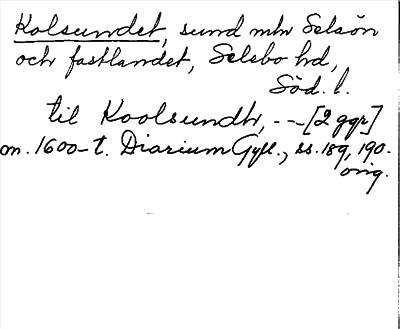 Kolsundet, sund mln Selsön
och fastlandet, Selebo hd,
Söd. l.
til Koolsundh, -- [2 ggr]
om. 1600-t. Diarium Gyll., ss. 189, 190.
orig.